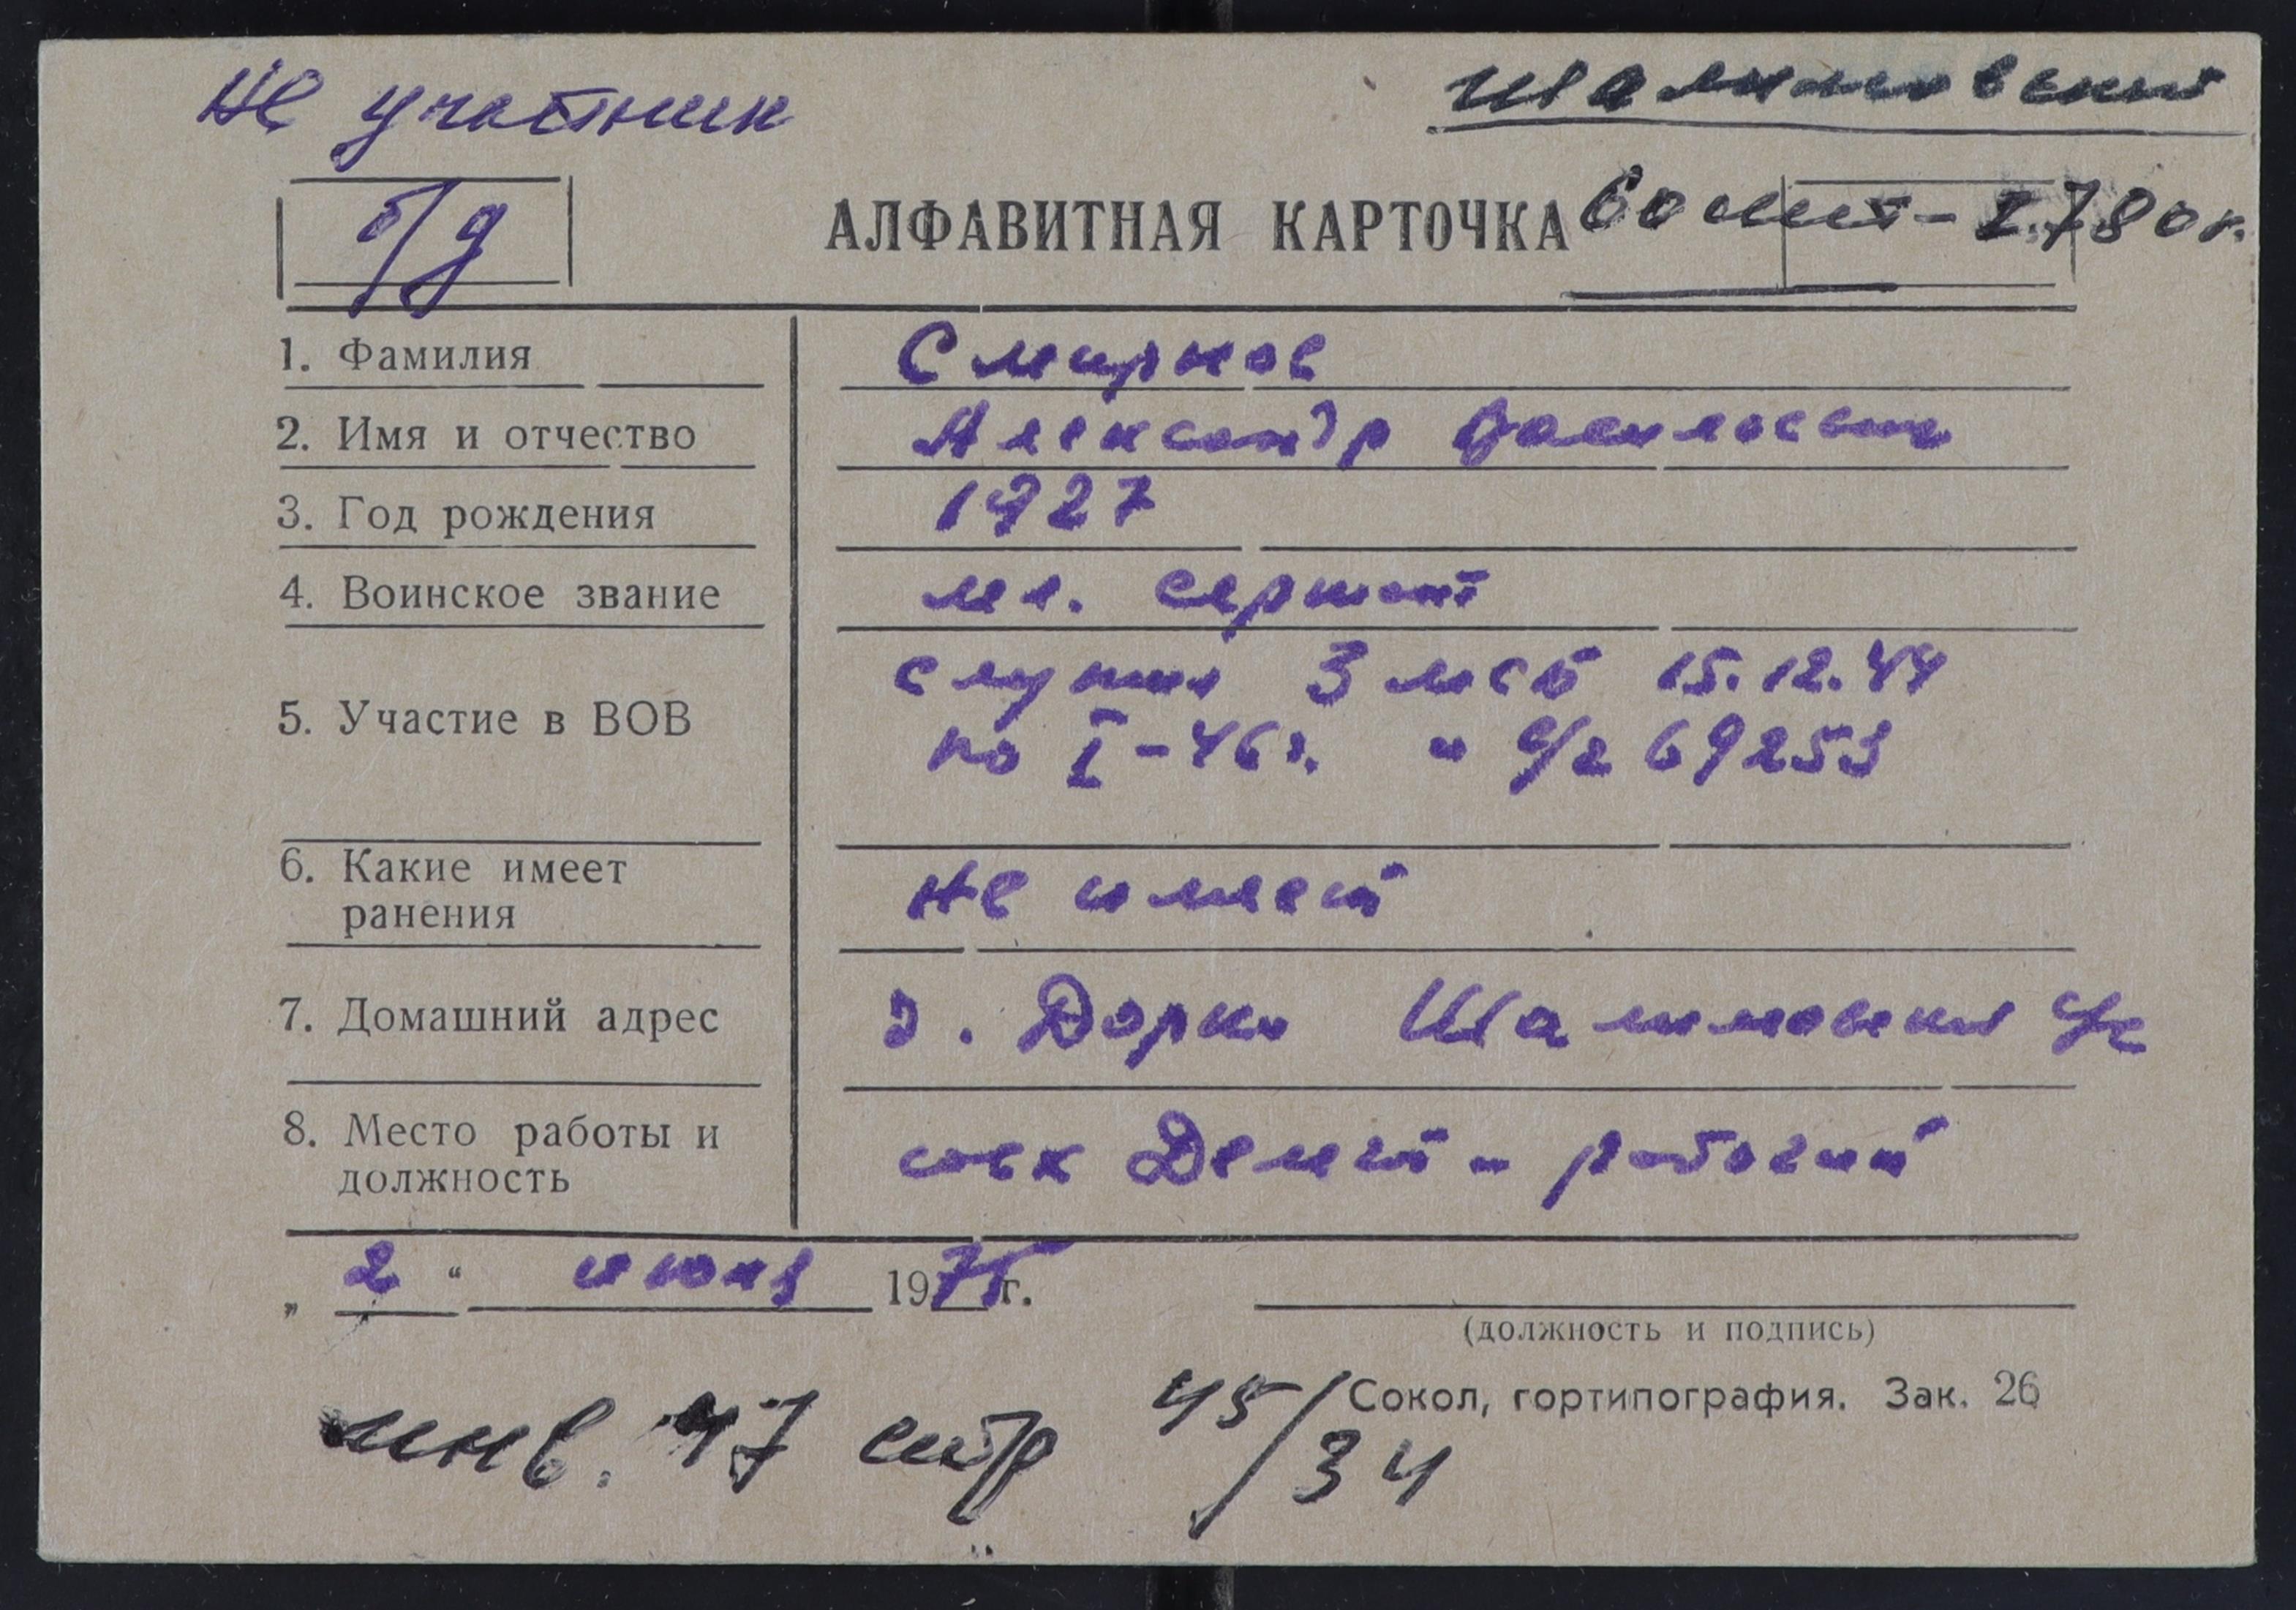 Не участник
Шалимовский
б/д
АЛФАВИТНАЯ КАРТОЧКА 60 лет - I.780 г.
1. Фамилия Смирнов
2. Имя и отчество Александр Васильевич
3. Год рождения 1927
4. Воинское звание мл. сержант
5. Участие в ВОВ служил 3 мсб 15.12.44
по I-46г. - с/г 69253
6. Какие имеет
ранения не имеет
7. Домашний адрес д. Дорки Шалимовский с/с
8. Место работы и
должность совх - рабочий
„ 2 “ июня 1975 г.
(должность и подпись)
Сокол, гортипография. Зак. 26
инв. 47 стр 45/34